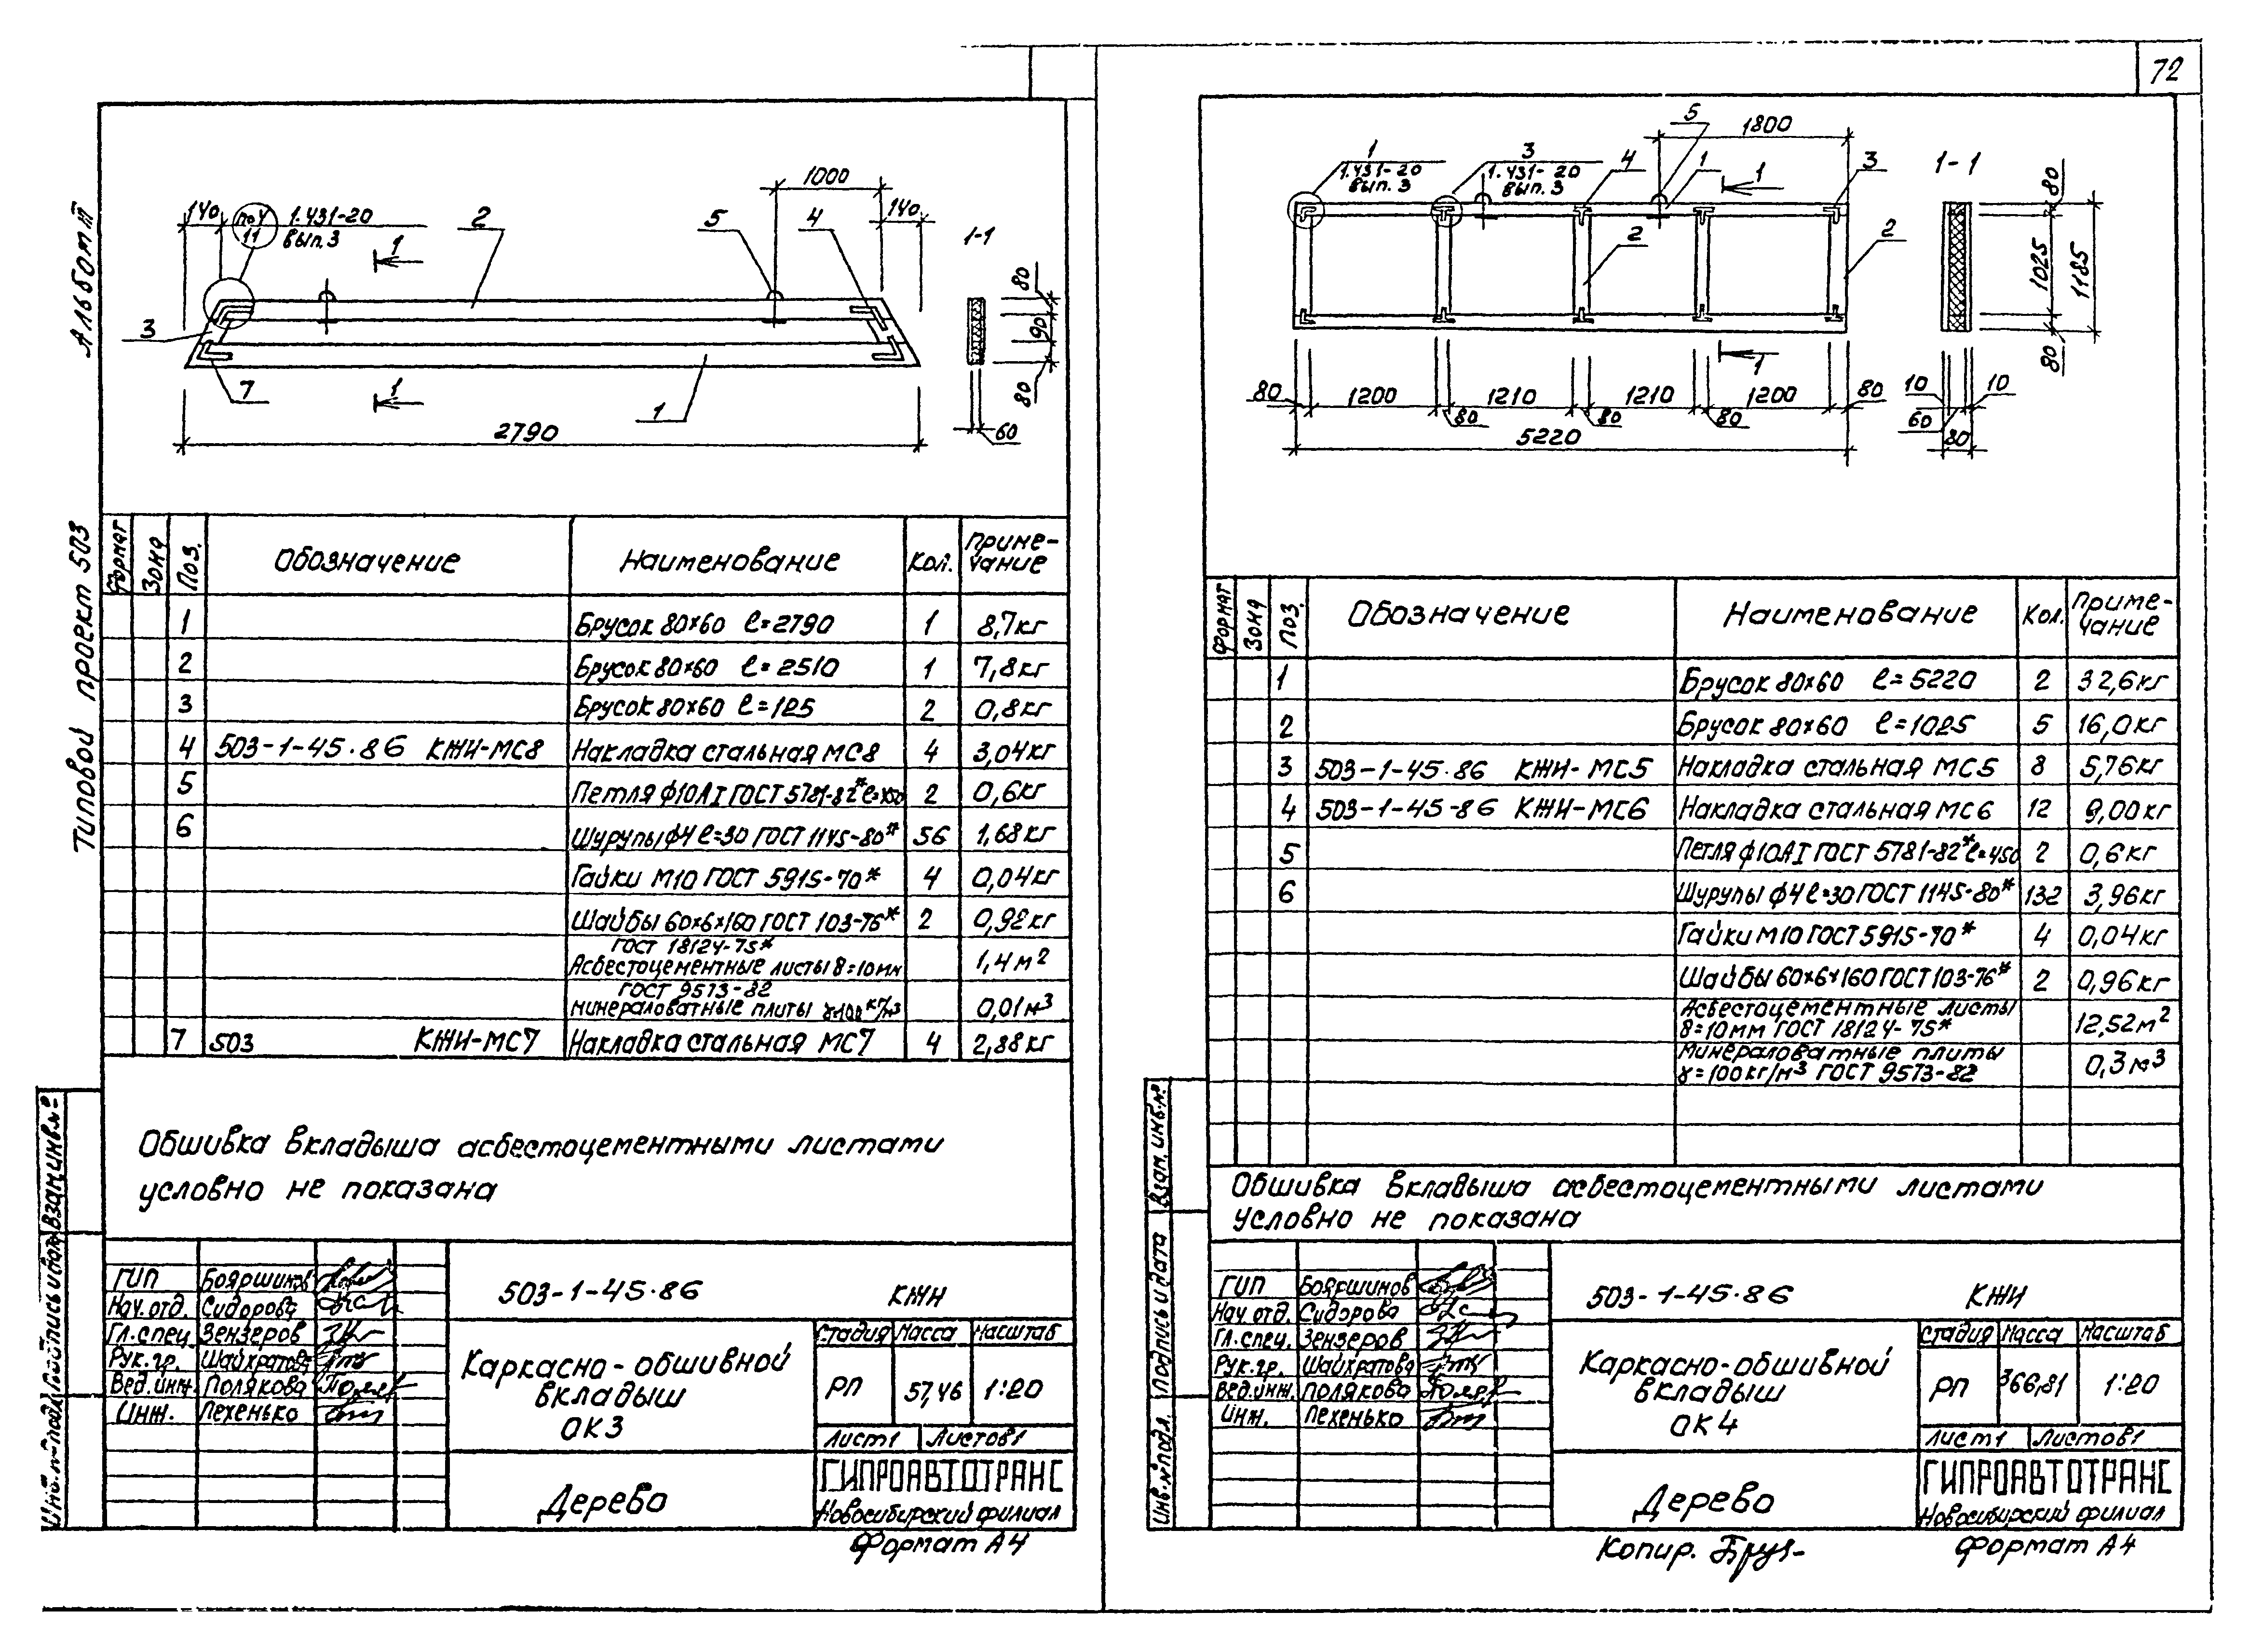 72
Альбом III
Типовой проект 503
140
по 4
11
1.431-20
вып.3
1
2
5
1000
4
140
1-1
80
90
80
60
3
7
1
1
2790
Формат Зона Поз. Обозначение Наименование Кол. Приме-
чание
1 Брусок 80×60 ℓ=2790 1 8,7кг
2 Брусок 80×60 ℓ=2510 1 7,8кг
3 Брусок 80×60 ℓ=125 2 0,8кг
4 503-1-45.86 КЖИ-МС8 Накладка стальная МС8 4 3,04кг
5 Петля ф10АI ГОСТ 5781-82* 2 0,6кг
6 Шурупы ф4 ℓ=30 ГОСТ 1145-80* 56 1,68кг
Гайки М10 ГОСТ 5915-70* 4 0,04кг
Шайбы 60×6×160 ГОСТ 103-76* 2 0,92кг
ГОСТ 18124-75*
Асбестоцементные листы δ=10мм 1,4м²
ГОСТ 9573-82
минераловатные плиты γ=100кг/м3 0,01м³
7 503 КЖИ-МС7 Накладка стальная МС7 4 2,88кг
Обшивка вкладыша асбестоцементными листами
условно не показана
ГИП Бояршинов
Нач.отд. Сидорова
Гл.спец. Зензеров
Рук.гр. Шайхратова
Вед.инж. Полякова
Инж. Пехенько
503-1-45.86 КЖИ
Каркасно-обшивной
вкладыш
ОК3
Стадия Масса Масштаб
РП 57,46 1:20
Лист1 Листов1
Дерево
ГИПРОАВТОТРАНС
Новосибирский филиал
Формат А4
Инв.№подл. Подпись и дата Взам.инв.№
1
1.431-20
вып.3
3
1.431-20
вып.3
4
5
1800
1
1
3
2
2
1
1-1
80
1025
1185
80
80 1200 80 1210 80 1210 80 1200 80
5220
10 10
60
80
Формат Зона Поз. Обозначение Наименование Кол. Приме-
чание
1 Брусок 80×60 ℓ=5220 2 32,6кг
2 Брусок 80×60 ℓ=1025 5 16,0кг
3 503-1-45.86 КЖИ-МС5 Накладка стальная МС5 8 5,76кг
4 503-1-45-86 КЖИ-МС6 Накладка стальная МС6 12 9,00кг
5 Петля ф10АI ГОСТ 5781-82* ℓ=450 2 0,6кг
6 Шурупы ф4 ℓ=30 ГОСТ 1145-80* 132 3,96кг
Гайки М10 ГОСТ 5915-70* 4 0,04кг
Шайбы 60×6×160 ГОСТ 103-76* 2 0,96кг
Асбестоцементные листы
δ=10мм ГОСТ 18124-75* 12,52м²
минераловатные плиты
γ=100кг/м3 ГОСТ 9573-82 0,3м³
Обшивка вкладыша асбестоцементными листами
условно не показана
ГИП Бояршинов
Нач.отд. Сидорова
Гл.спец. Зензеров
Рук.гр. Шайхратова
Вед.инж. Полякова
Инж. Пехенько
503-1-45.86 КЖИ
Каркасно-обшивной
вкладыш
ОК4
Стадия Масса Масштаб
РП 366,81 1:20
Лист1 Листов1
Дерево
ГИПРОАВТОТРАНС
Новосибирский филиал
Копир. Формат А4
Инв.№подл. Подпись и дата Взам.инв.№